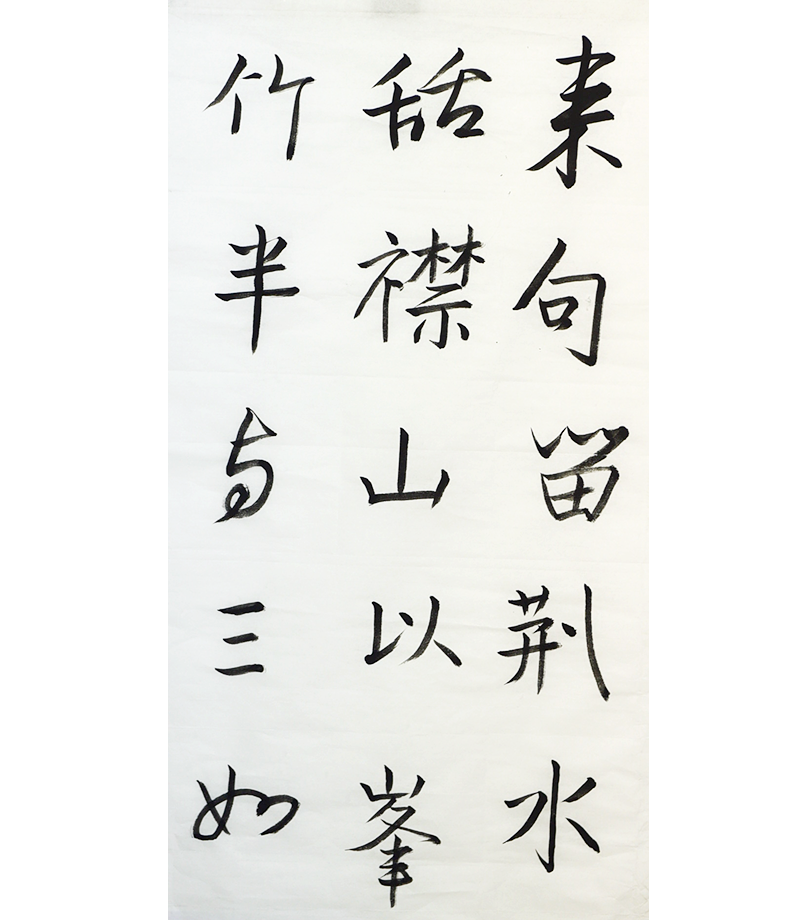 来句留荆水
襟山以峯
竹半与三如